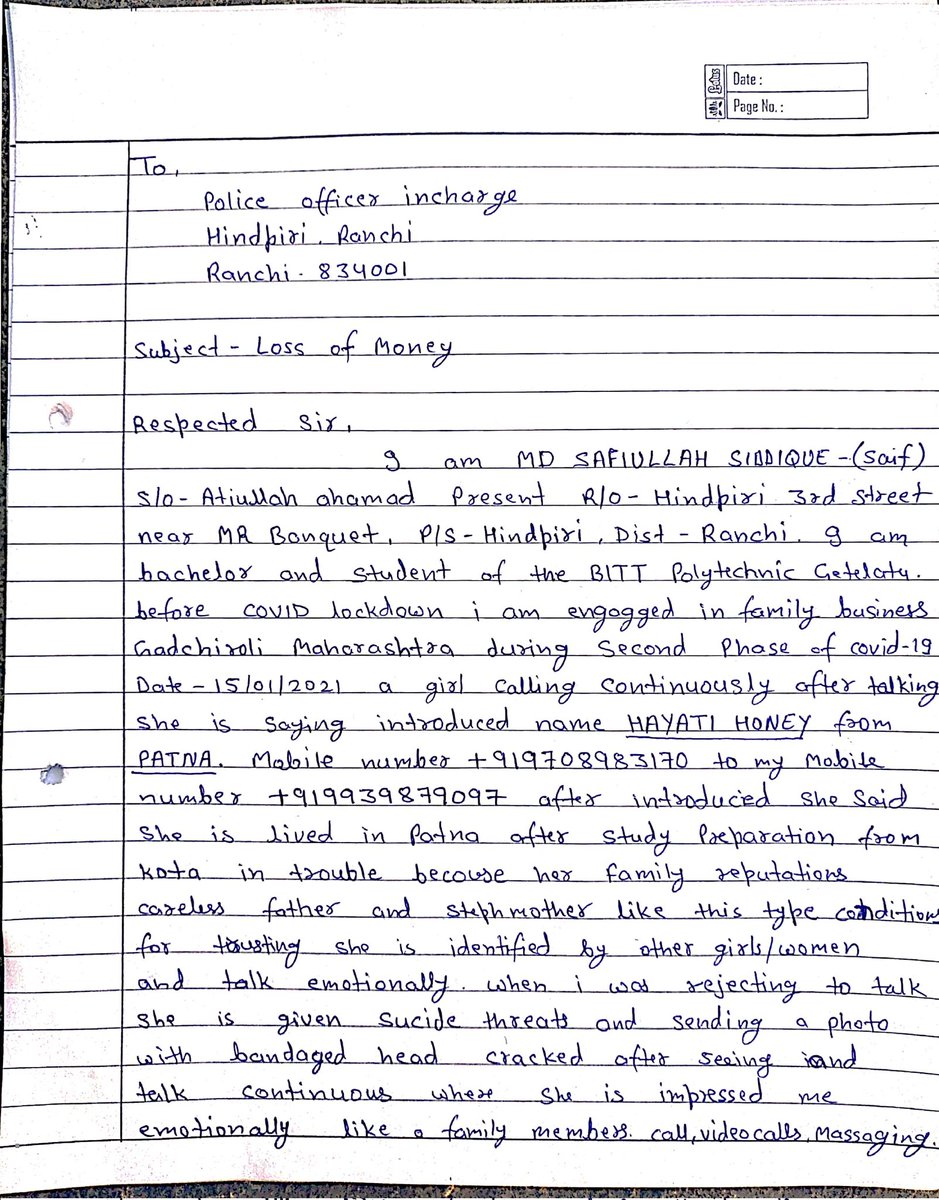 Lotus
Date :
Page No. :
To,
Police officer incharge
Hindpiri. Ranchi
Ranchi - 834001
Subject - Loss of Money
Respected Sir,
I am MD SAFIULLAH SIDDIQUE -(Saif)
S/o - Atiullah ahamad Present R/o - Hindpiri 3rd Street
near MR Banquet, P/S - Hindpiri, Dist - Ranchi. I am
bachelor and student of the BITT Polytechnic
before COVID lockdown i am engogged in family business
Gadchiroli Maharashtra during Second Phase of covid-19
Date - 15/01/2021 a girl calling continuously after talking
she is saying introduced name HAYATI HONEY from
PATNA. Mobile number +919708983170 to my Mobile
number +919939879097 after introduced she said
she is lived in Patna after study Preparation from
kota in trouble becouse her family reputations
careless father and stephmother like this type condition
for trusting she is identified by other girls/women
and talk emotionally. when i was rejecting to talk
she is given sucide threats and sending a photo
with bandaged head cracked after seeing and
talk continuous where she is impressed me
emotionally like a family members. call, videocalls, Massaging.